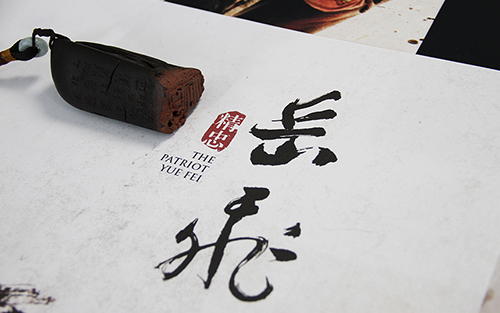 岳飞
精忠
THE
PATRIOT
YUE FEI